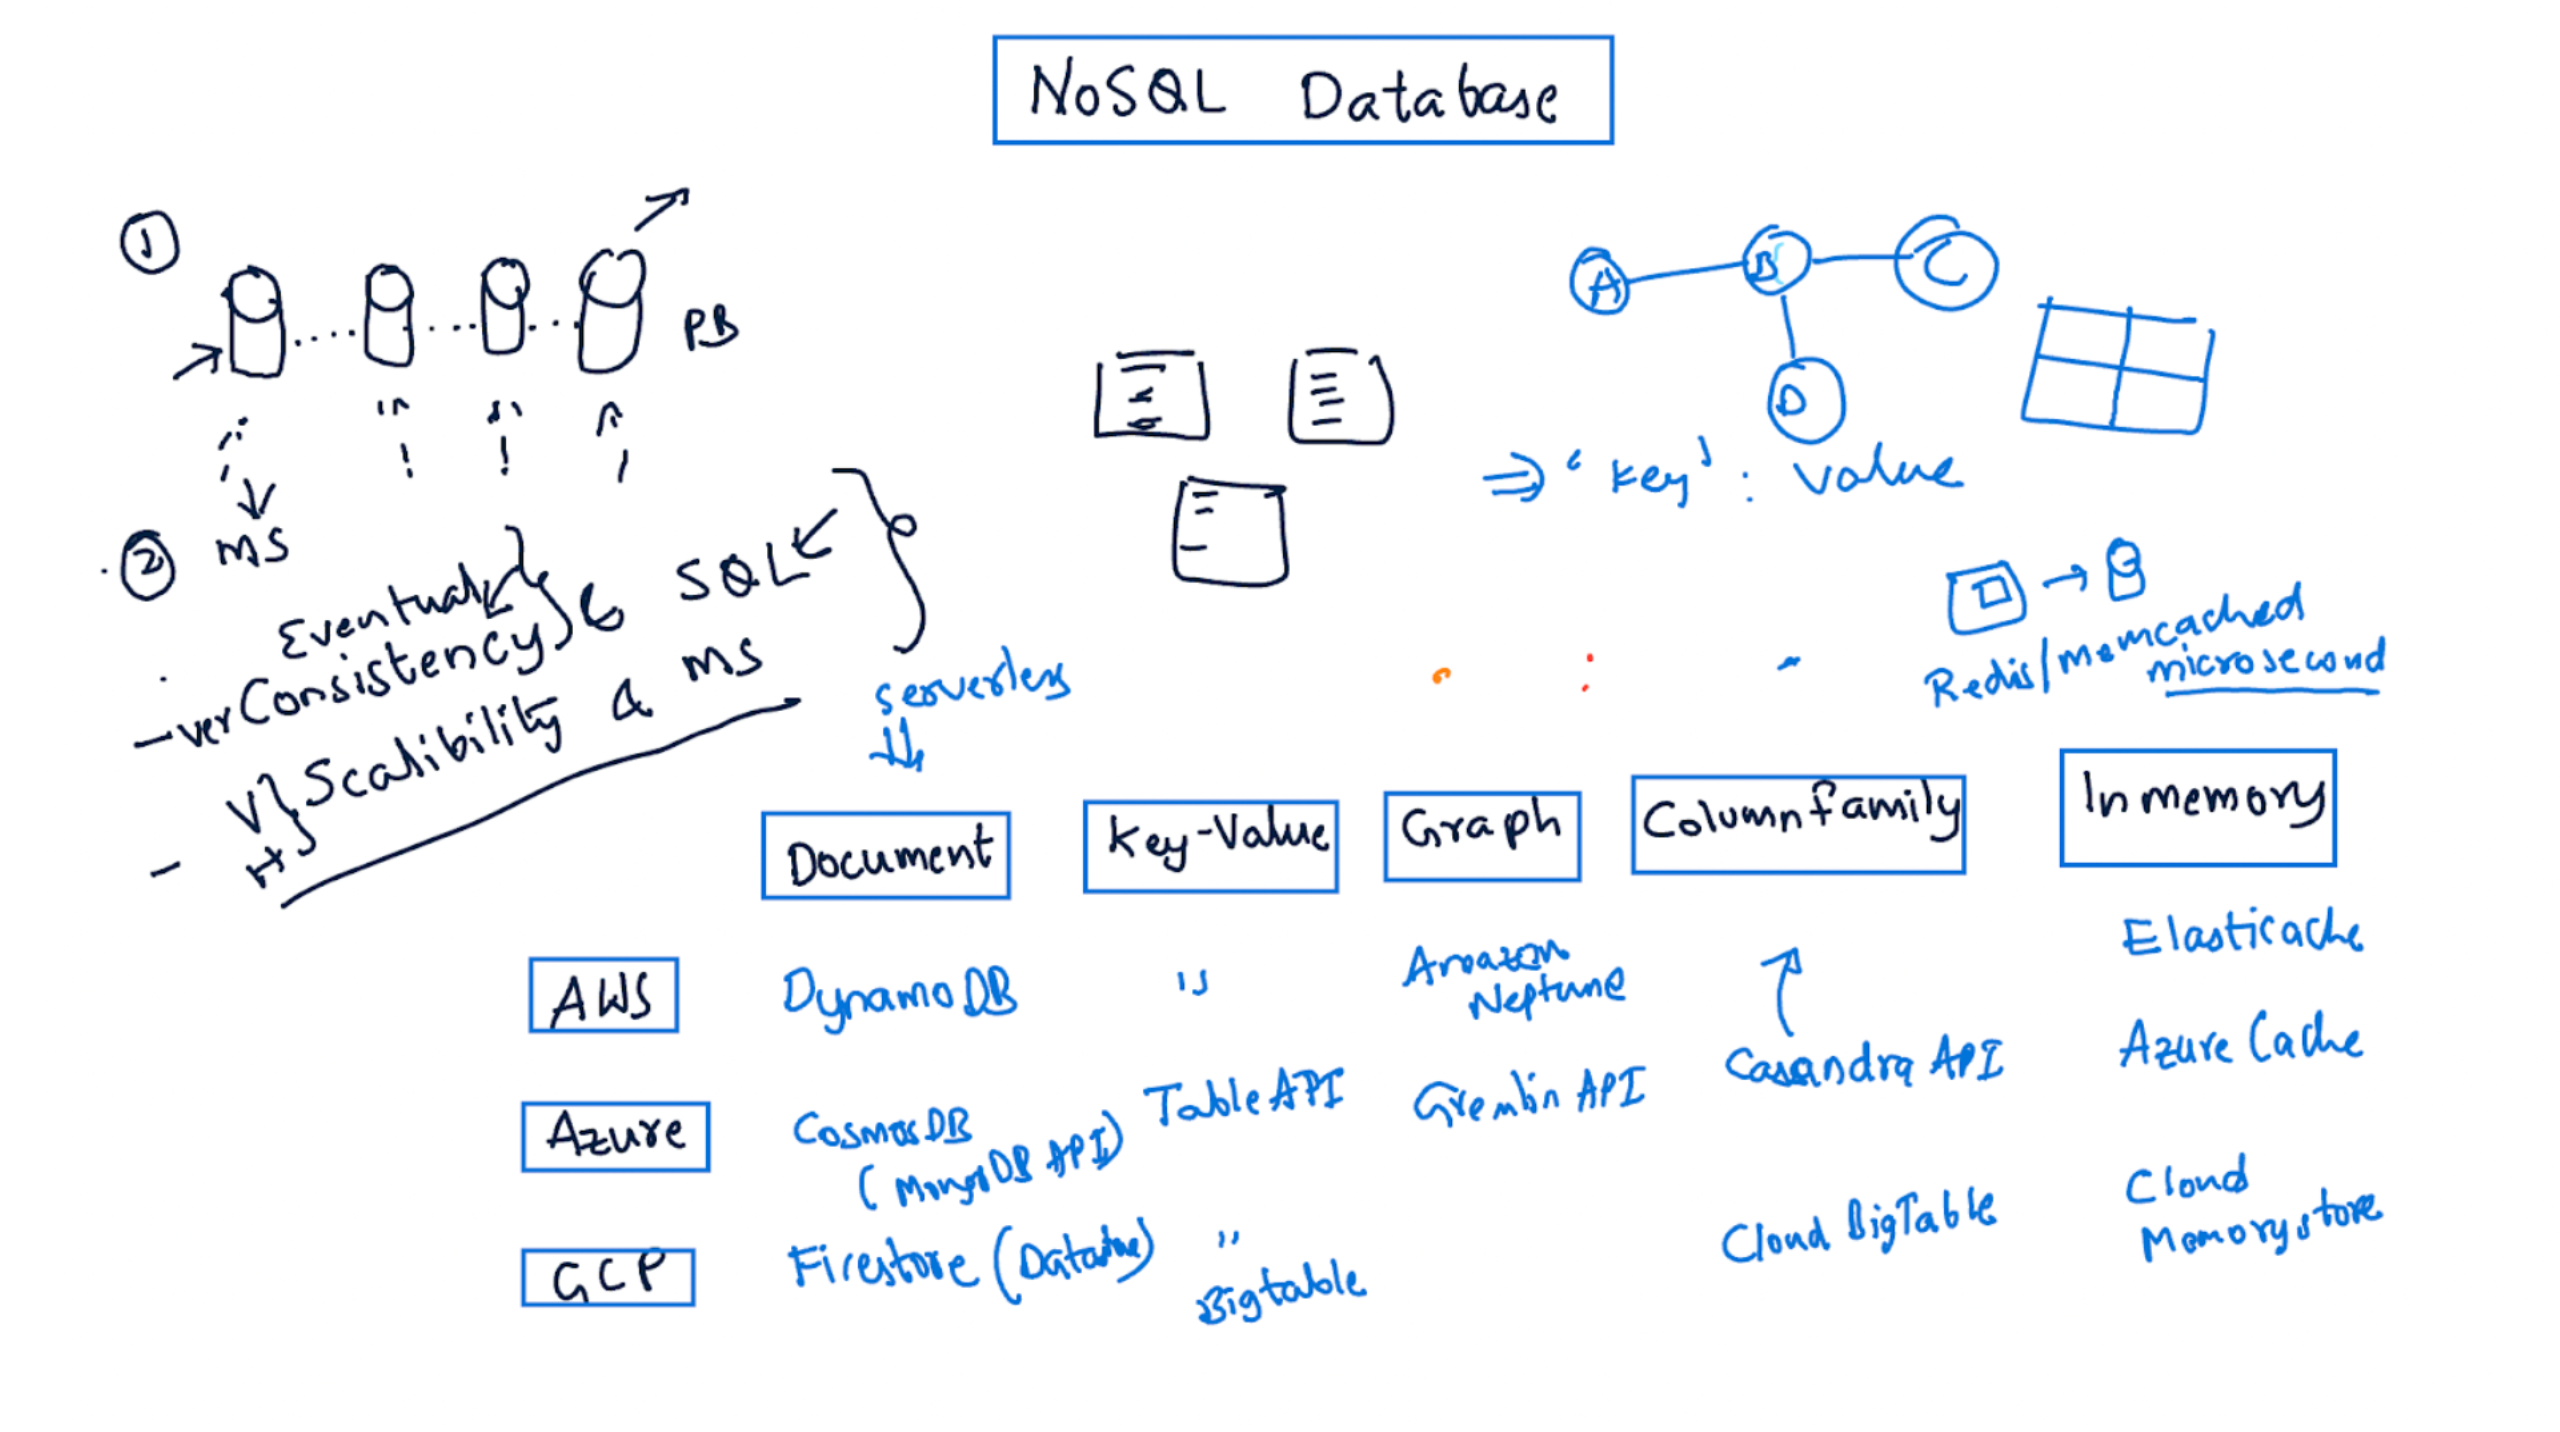 NoSQL Database
1
PB
A
B
C
D
'Key' : Value
2
ms
Eventual
Consistency
SQL
ver
Scalibility & ms
V
H
serverless
Redis/memcached
microsecond
Document
Key-Value
Graph
Columnfamily
Inmemory
AWS
DynamoDB
"
Amazon
Neptune
Elasticache
Azure
CosmosDB
(MongoDB API)
Table API
Gremlin API
Casandra API
Azure Cache
GCP
Firestore
"
Bigtable
Cloud BigTable
Cloud
Memorystore